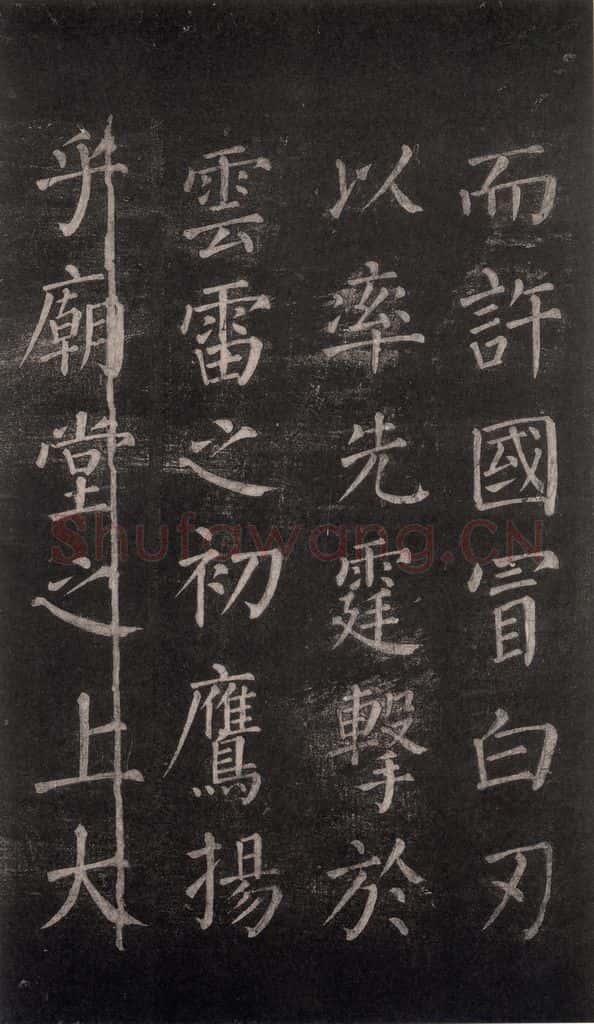 而許國冒白刃
以率先霆擊於
雲雷之初鷹揚
乎廟堂之上大
Shufawang.CN